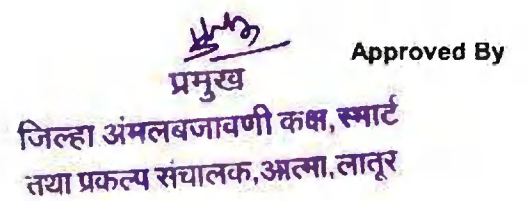 Approved By
प्रमुख
जिल्हा अंमलबजावणी कक्ष, स्मार्ट
तथा प्रकल्प संचालक,आत्मा,लातूर